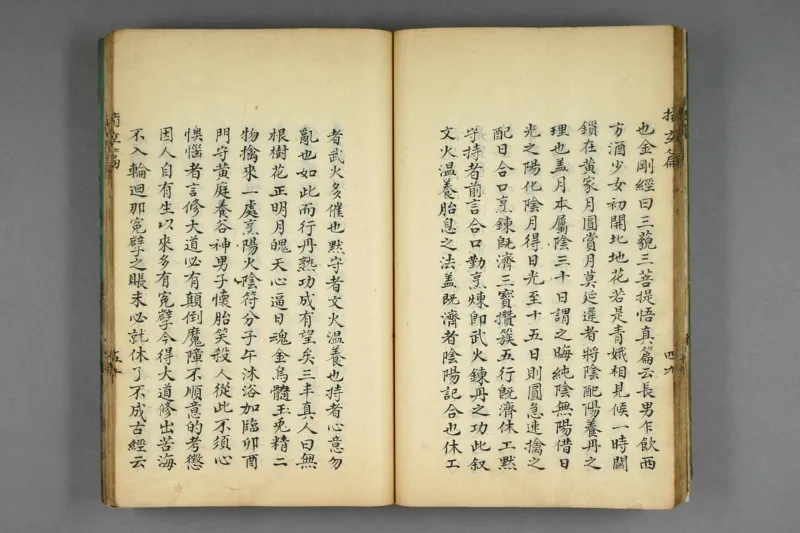 也金剛經曰三藐三菩提悟真篇云長男乍飲西
方酒少女初開北地花若是青娥相見候一時關
鎖在黃家月圓賞月莫延遲者將陰配陽養丹之
理也盖月本屬陰三十日謂之晦純陰無陽借日
光之陽化陰月得日光至十五日則圓急速擒之
配日合口烹鍊旣濟三寶攢簇五行旣濟休工黙
守持者前言合口勤烹煉卽武火鍊丹之功此叙
文火温養胎息之法盖旣濟者陰陽記合也休工
者武火多催也黙守者文火温養也持者心意勿
亂也如此而行丹熟功成有望矣三丰真人曰無
根樹花正明月魄天心逼日魂金烏髓玉兎精二
物擒來一處烹陽火陰符分子午沐浴加臨卯酉
門守黃庭養谷神男子懷胎笑殺人從此不須心
懊惱者言修大道必有顛倒魔障不順意的考懲
因人自有生以來多有寃孽今得大道修出苦海
不入輪迴那寃孽之賬未必就休了不成古經云